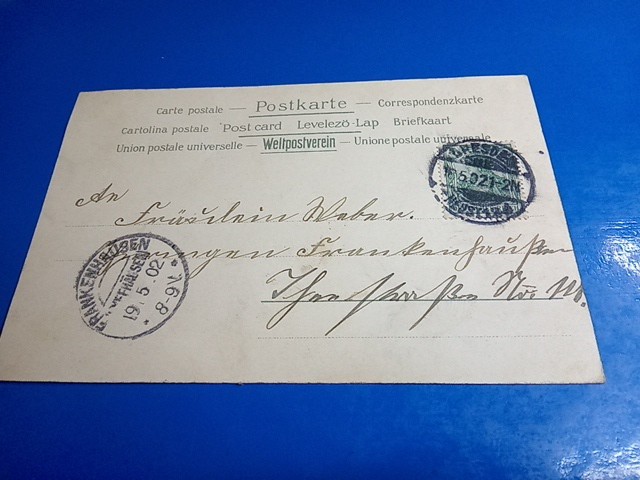 Carte postale — Postkarte — Correspondenzkarte
Cartolina postale Post card Levelező-Lap Briefkaart
Union postale universelle — Weltpostverein — Unione postale universale
An
Fräulein Weber.
Frankenhausen
straße No.
FRANKENHAUSEN
19.5.02
8-9V.
5.02.1-2N